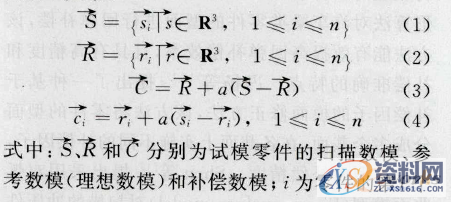 $\vec{S} = \{\vec{s_i} | \vec{s} \in \mathbf{R}^3, \quad 1 \leq i \leq n\}$ (1)
$\vec{R} = \{\vec{r_i} | \vec{r} \in \mathbf{R}^3, \quad 1 \leq i \leq n\}$ (2)
$\vec{C} = \vec{R} + a(\vec{S} - \vec{R})$ (3)
$\vec{c_i} = \vec{r_i} + a(\vec{s_i} - \vec{r_i}), \quad 1 \leq i \leq n$ (4)
式中:$\vec{S}$、$\vec{R}$ 和 $\vec{C}$ 分别为试模零件的扫描数模、参
考数模(理想数模)和补偿数模;i 为
ZL.XS1616.COM